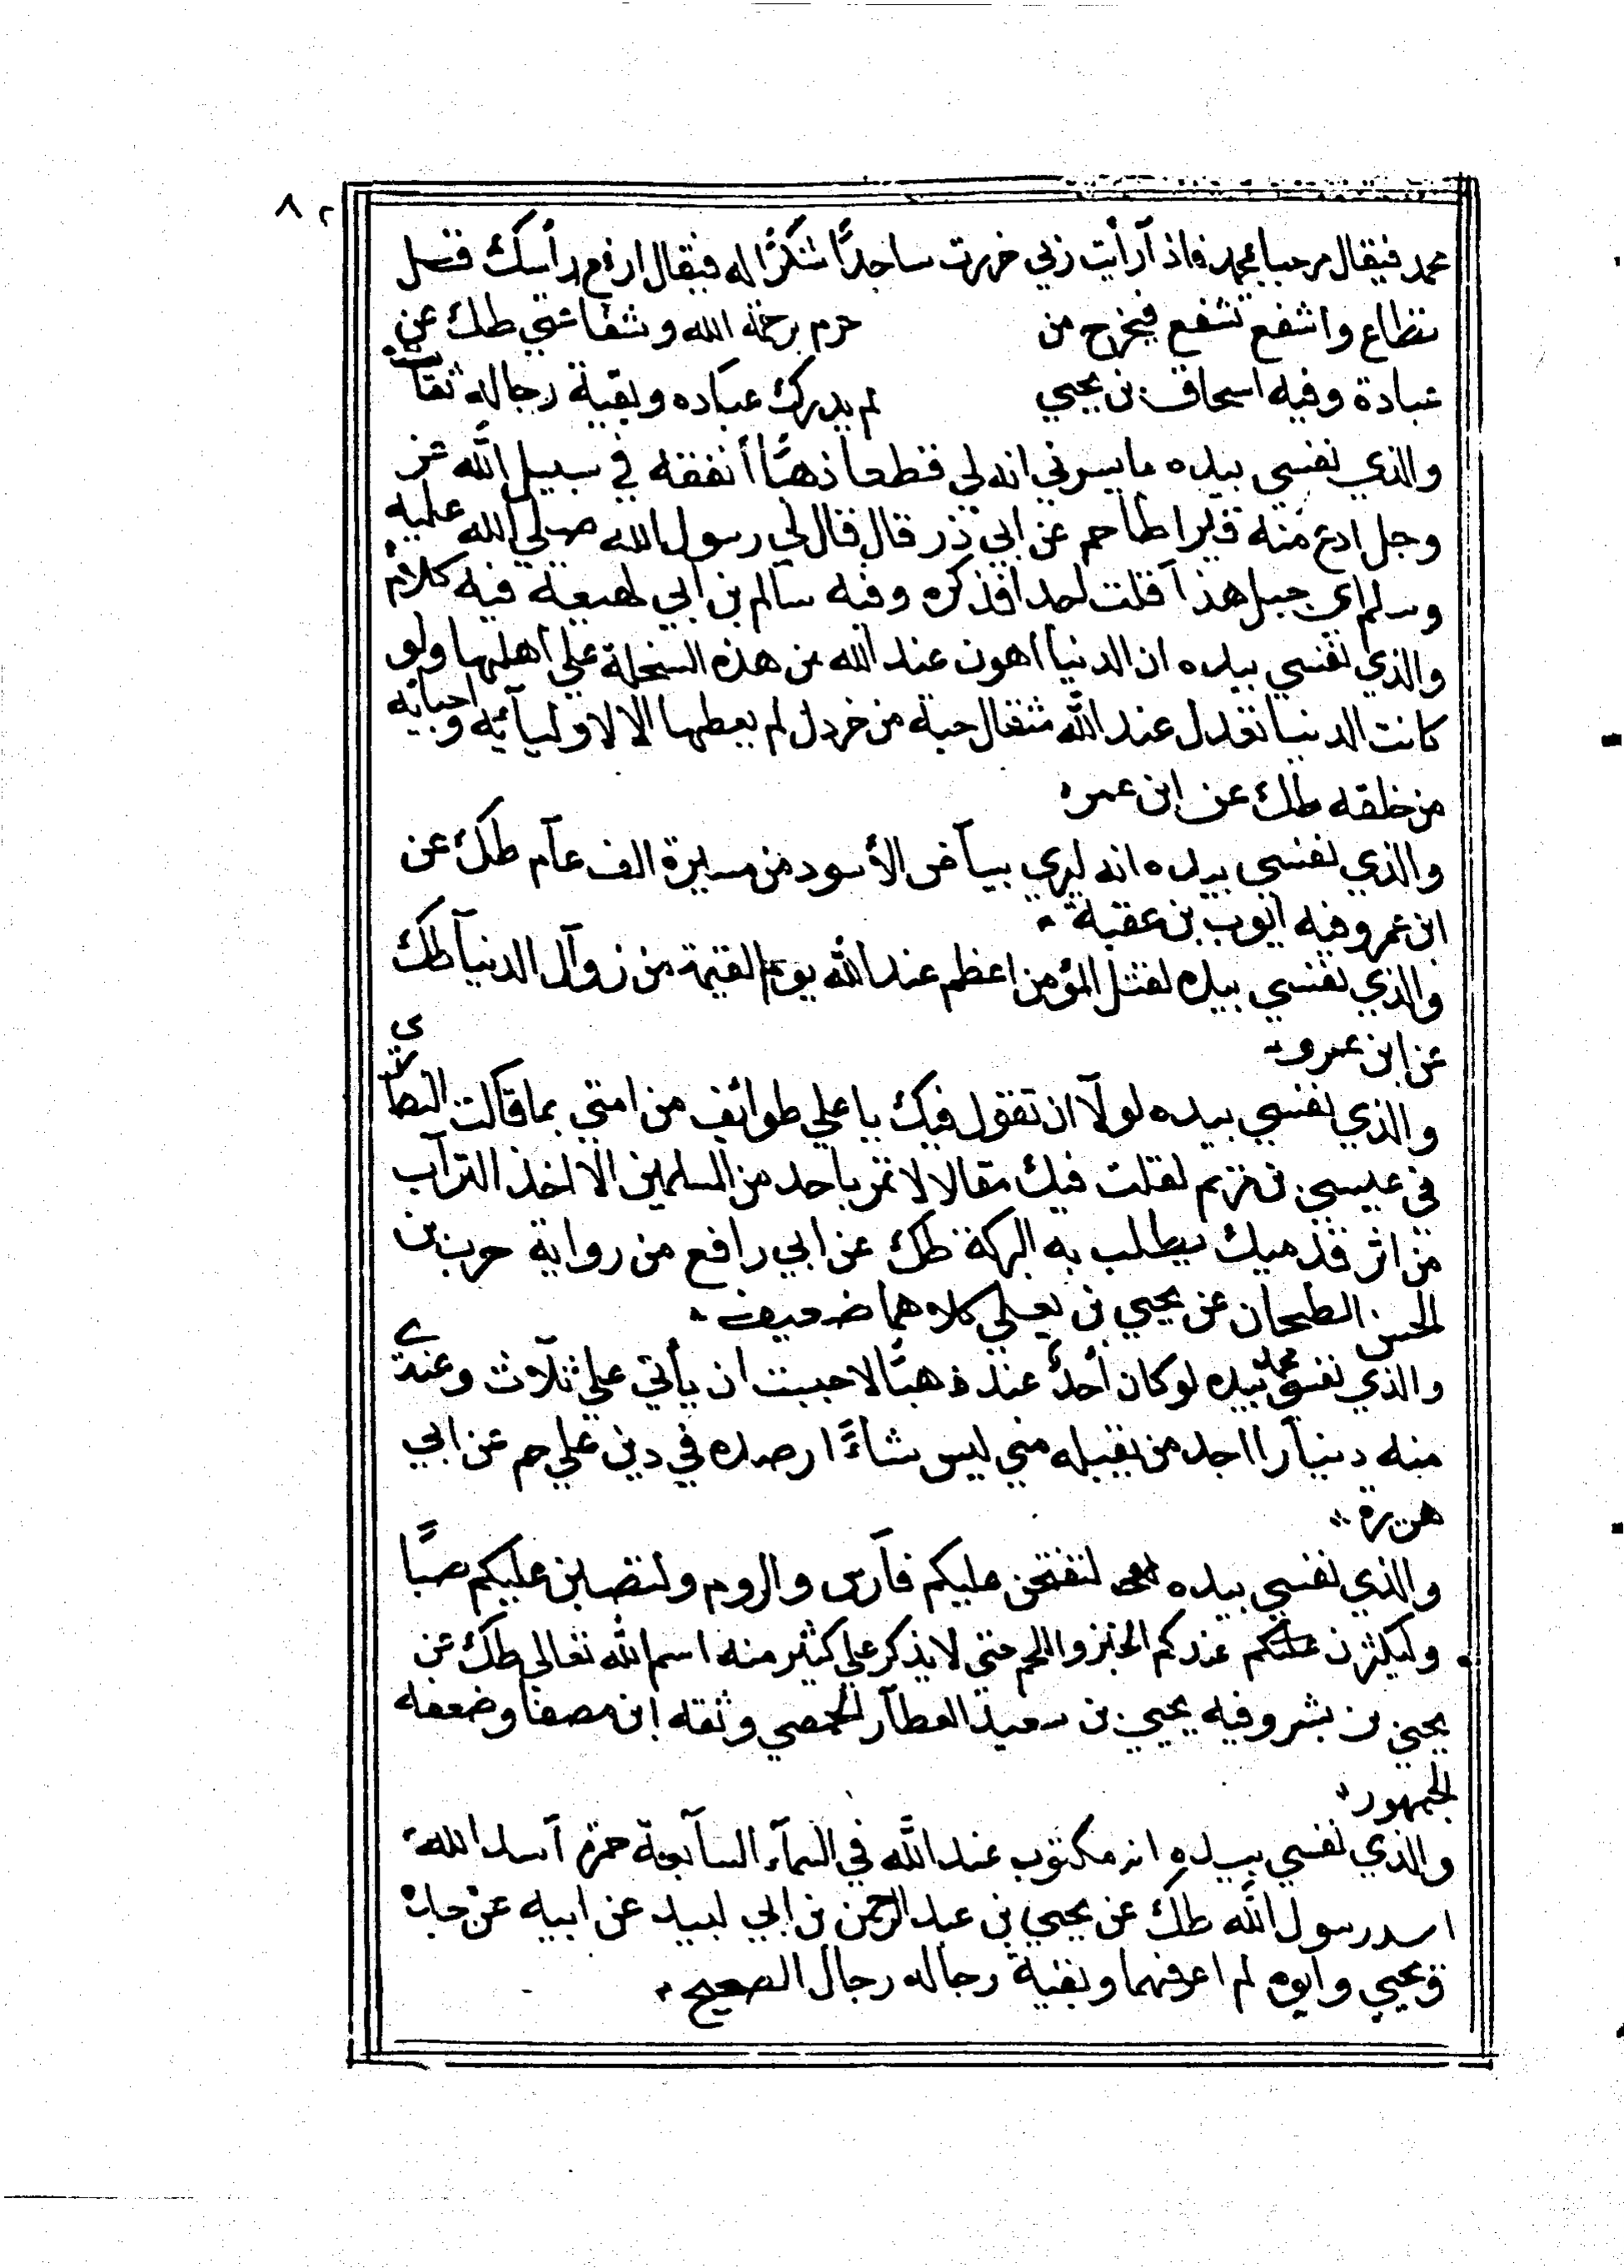 ٨٢
محمد فيقال مرحبا بمحمد فاذآ رأيت ربي خررت ساجدًا شكرًا له فيقال ارفع رأسك فقل
تطاع واشفع تشفع فيخرج من حرم برحمة الله وشفاعتي طك عن
عبادة وفيه اسحاق بن يحيي لم يدرك عباده وبقية رجاله ثقات
والذي نفسي بيده ما يسرني انه لي قطعا ذهبًا أنفقه في سبيل الله عز
وجل ادع منه قيراطا حم عن ابي ذر قال قال لي رسول الله صلي الله عليه
وسلم اي جبل هذا قلت احد افذكره وفيه سالم بن ابي لهيعة فيه كلام
والذي نفسي بيده ان الدنيا اهون عند الله من هذه السخلة علي اهلها ولو
كانت الدنيا تعدل عند الله مثقال حبة من خردل لم يعطها الا لاوليآئه واحبابه
من خلقه طك عن ابن عمره
والذي نفسي بيده انه ليري بيآض الأسود من مسيرة الف عآم طك عن
ابن عمر وفيه ايوب بن عقبة
والذي نفسي بيده لقتل المؤمن اعظم عند الله يوم القيمة من زوآل الدنيآ طك
عن ابن عمرو
والذي نفسي بيده لولآ ان تقول فيك يا علي طوائف من امتي بما قالت النصاري
في عيسي بن مريم لقلت فيك مقالا لا تمر باحد من المسلمين الا اخذ الترآب
من اثر قدميك يطلب به البركة طك عن ابي رافع من رواية حرب بن
الحسن الطحان عن يحيي بن يعلي كلاهما ضعيف
والذي نفس محمد بيده لو كان أحدٌ عند ذهبًا لاحببت ان يأتي علي ثلآث وعندي
منه دينآرا اجد من يقبله مني ليس شاءً ارصده في دين علي حم عن ابي
هريرة
والذي نفسي بيده لتفتحن عليكم فآرس والروم ولتصبن عليكم صبًا
وليكثرن عندكم الخبز واللحم حتي لا يذكر علي كثير منه اسم الله تعالي طك عن
يحيي بن بشر وفيه يحيي بن سعيد العطآر الحمصي وثقه ابن مصفا وضعفه
الجمهور
والذي نفسي بيده انه مكتوب عند الله في السمآء السآبعة حمزة آسد الله
اسد رسول الله طك عن يحيي بن عبد الرحمن بن ابي لبيد عن ابيه عن جده
ويحيي وابوه لم اعرفهما وبقية رجاله رجال الصحيح